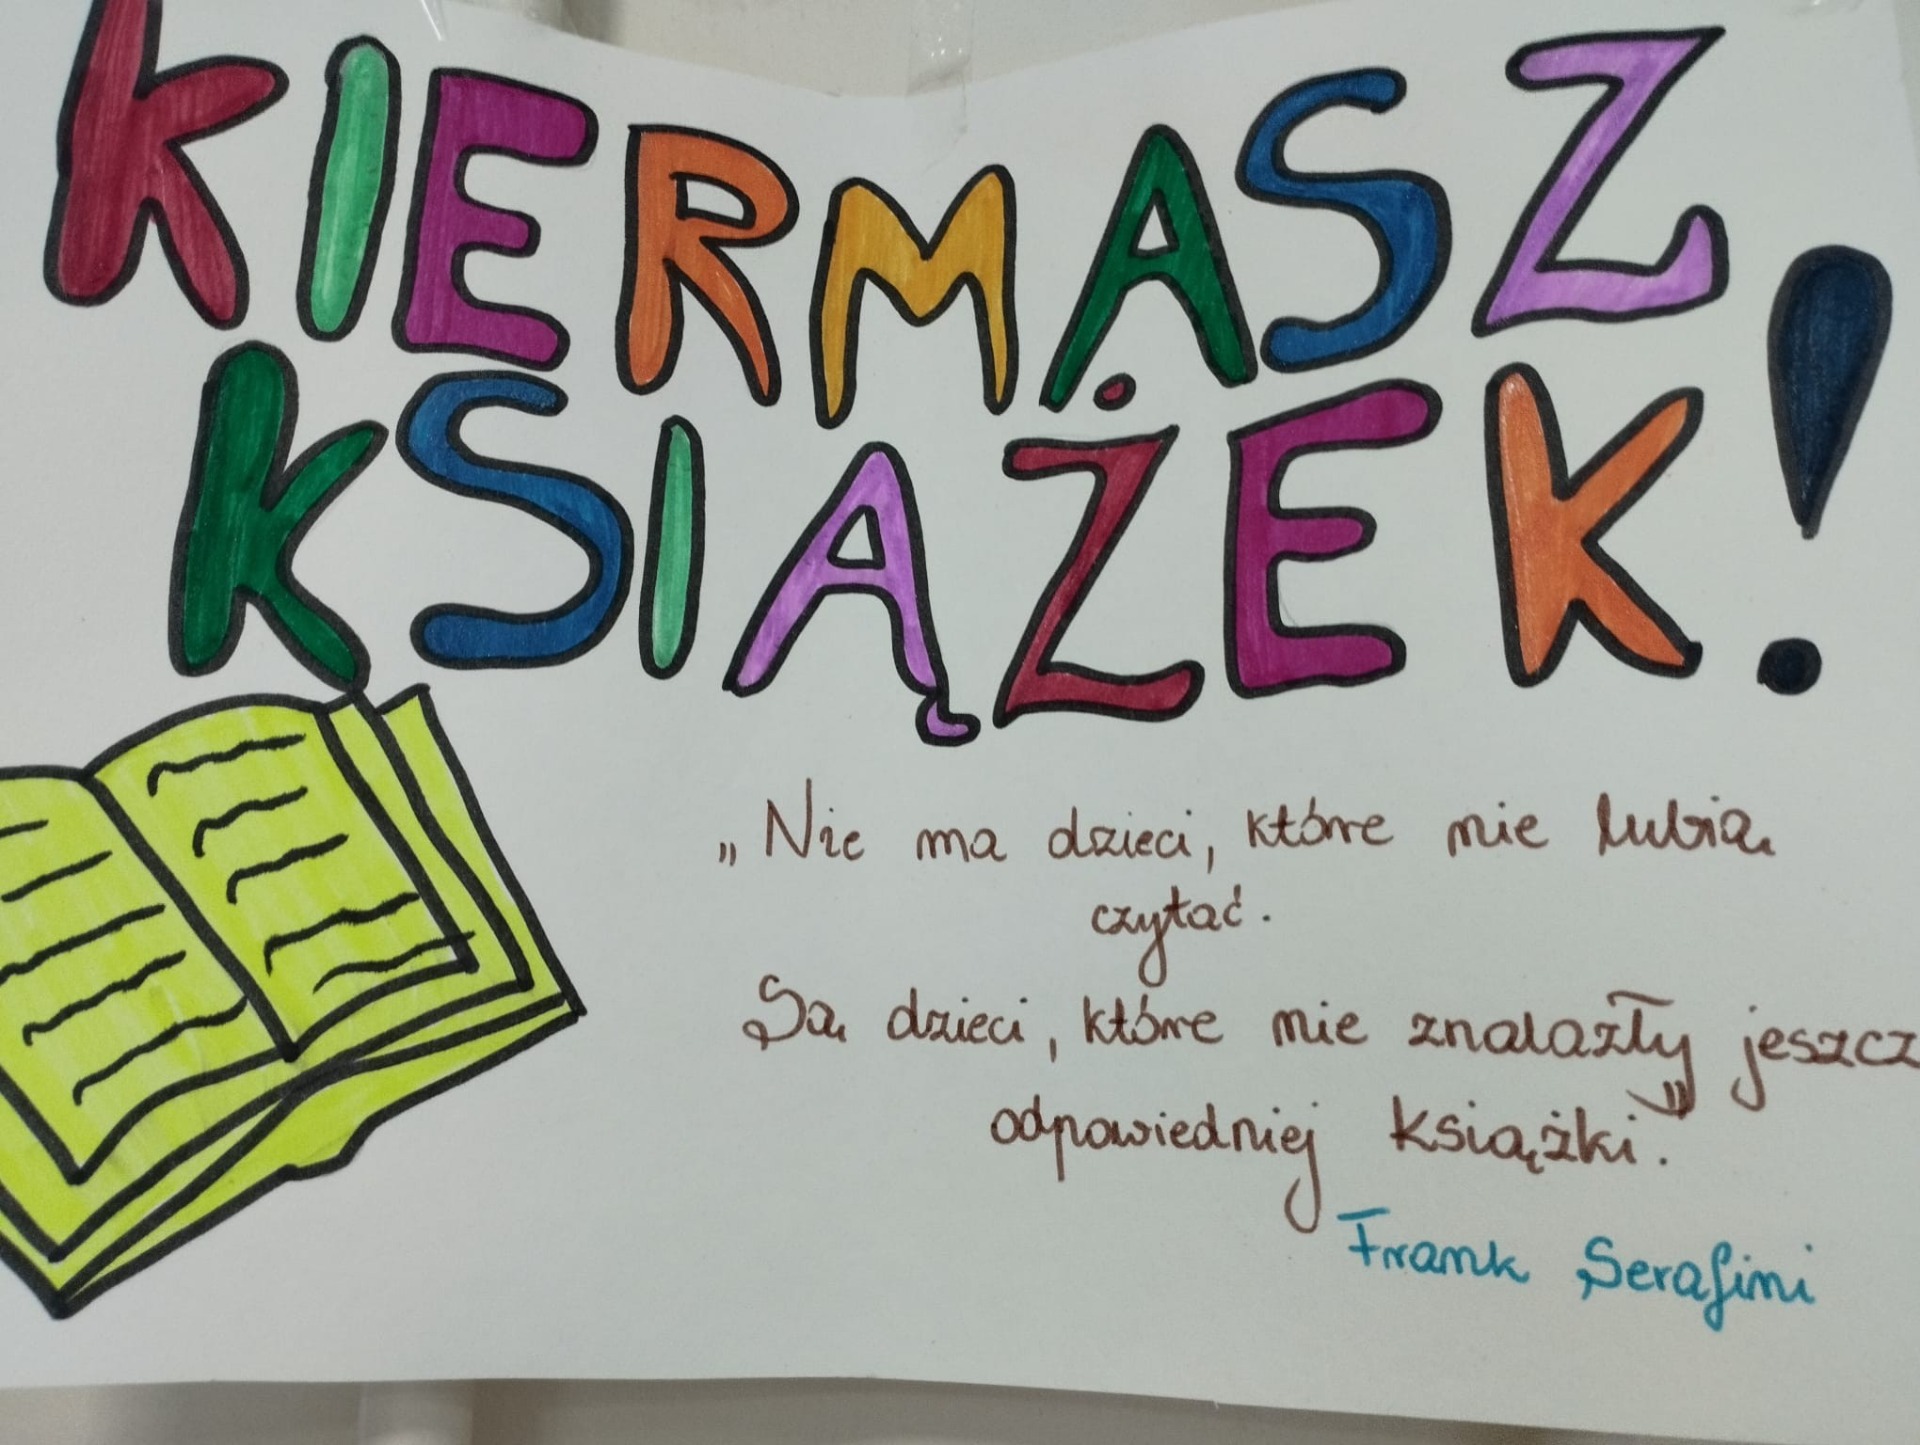 KIERMASZ
KSIĄŻEK!
„Nie ma dzieci, które nie lubią
czytać.
Są dzieci, które nie znalazły jeszcz
odpowiedniej książki”.
Frank Serafini